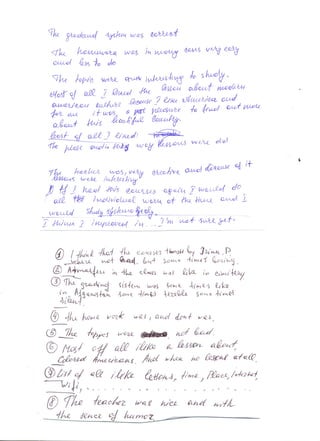 The graduand system was correct
The homework was in many cases very easy
and less to do
The topic were quite interesting to study.
Most of all I liked the lesson about modern
american culture because I like America and
for me it was a pleasure to find out more
about this beautiful country.
Least of all I liked
The place and way lessons were did
The teacher was very creative and because of it
lessons were interesting
If I had this courses again I would do
all the individual work at the time and I
would study systematically.
I think I improved in... I'm not sure yet.
① I think that the courses by P.
where not bad, but some times boring.
② Atmosfere in the class was like in cimitery
③ The grading sistem was some times like
in Afganstan some times terrible some times
silent.
④ the home work was, and dont was.
⑤ The toppos were not bad.
⑥ Most off all ilike a lesson about,
Colored Americans. And when no lesson at all.
⑦ List of all i like lessons, time, Place, intirnet,
Wifi, . . . . . .
⑧ The teacher was nice and with
the sence of humor